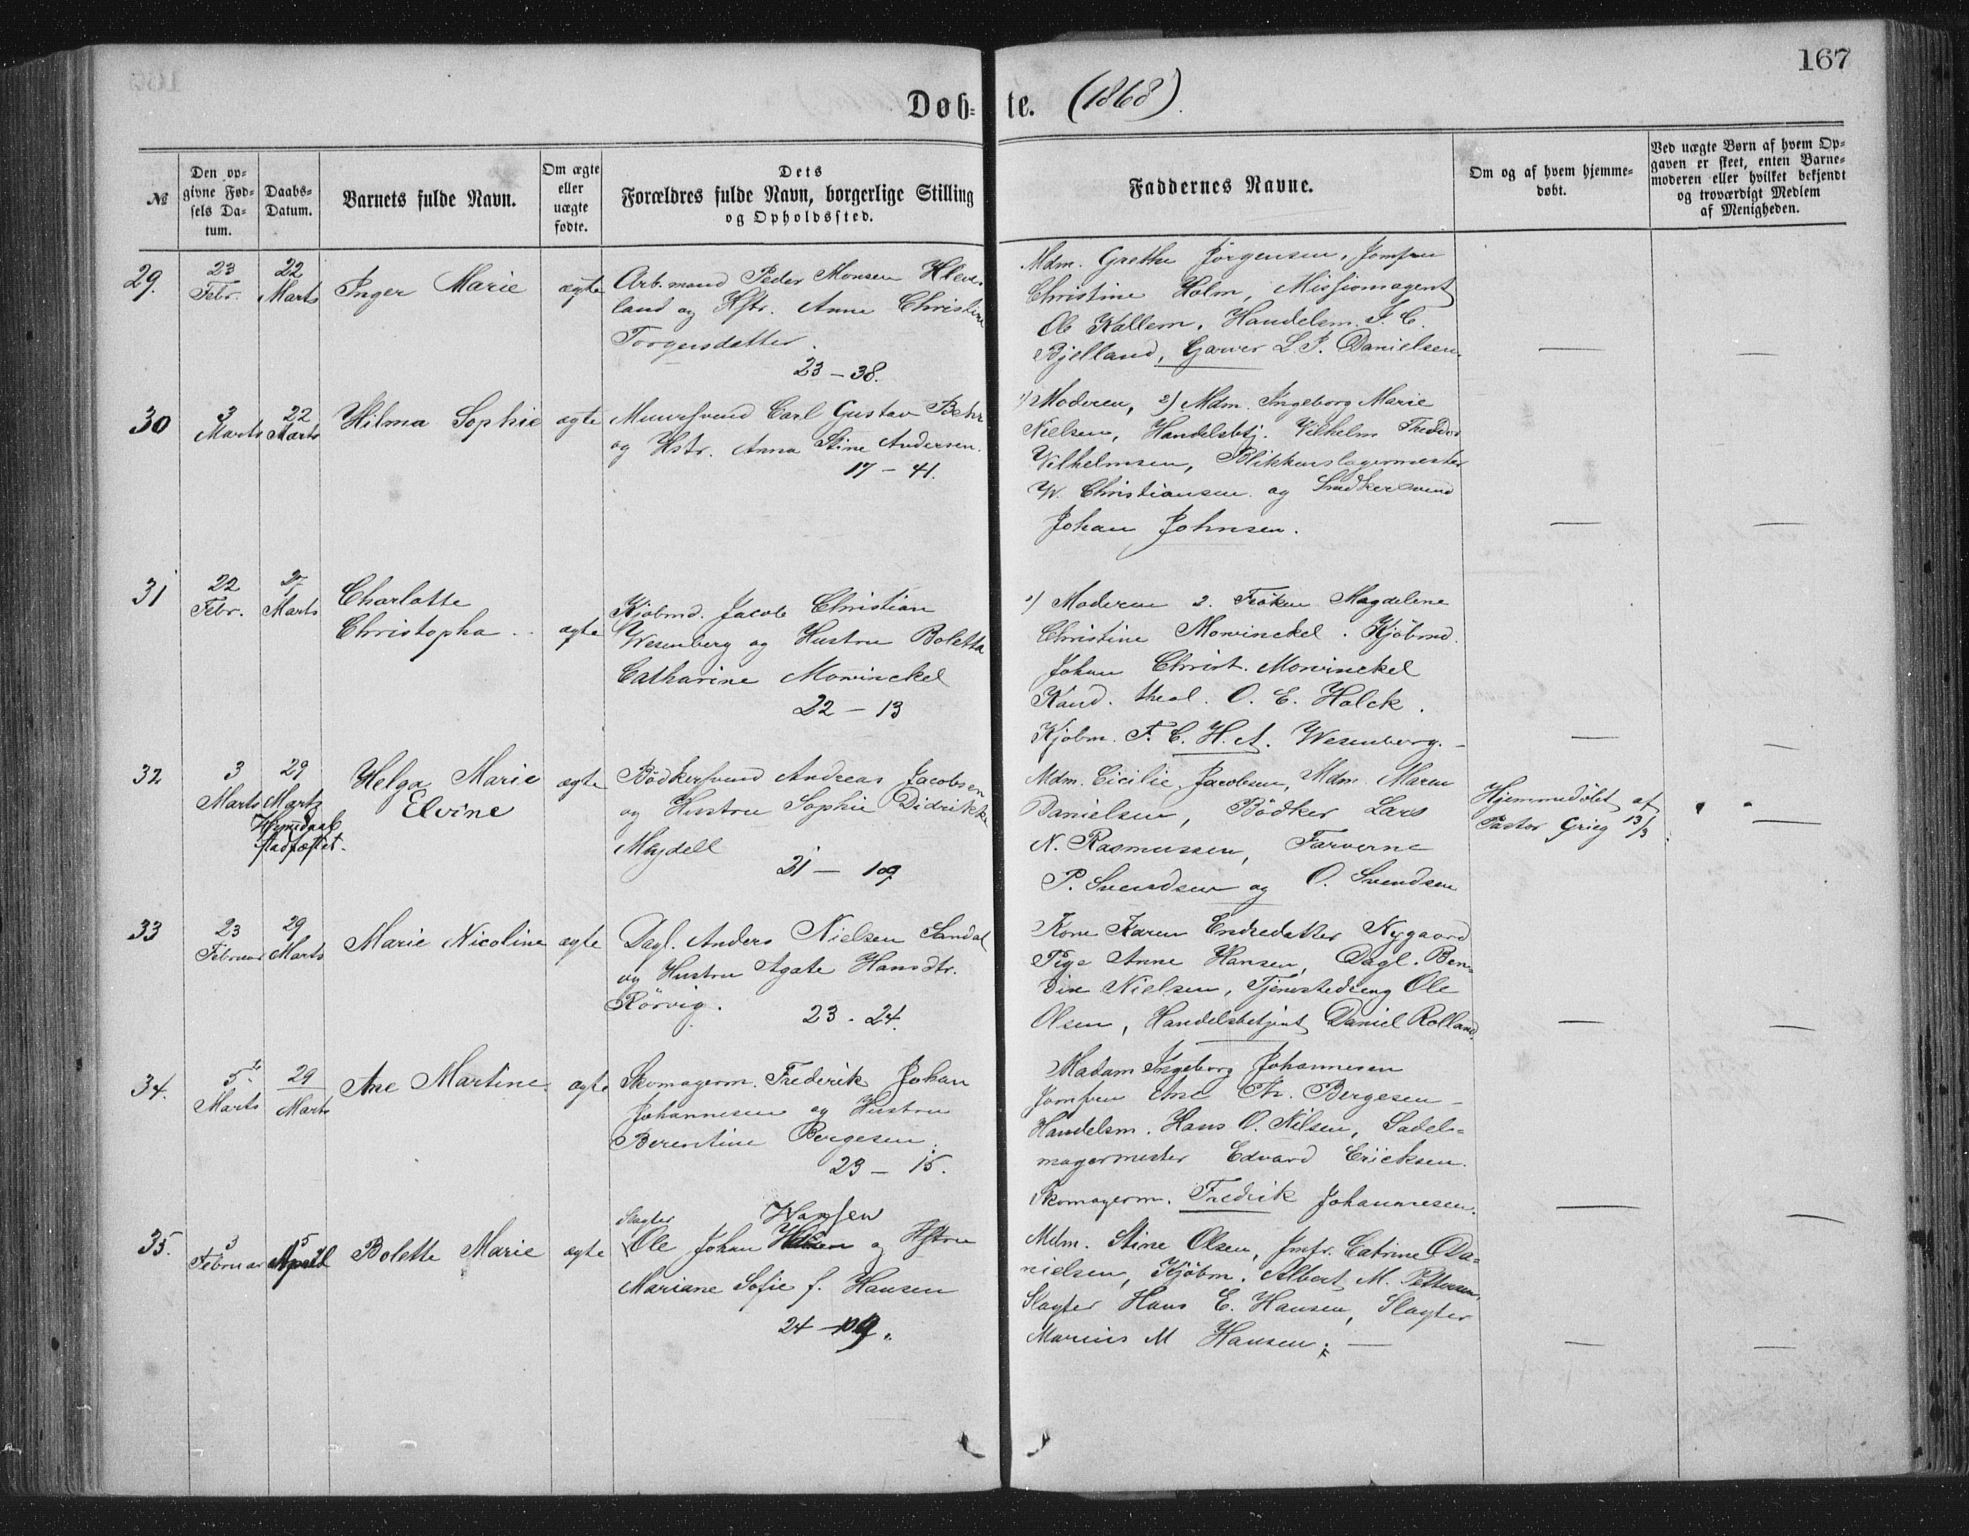 167
Døb-te. (1868).
№
Den op-
givne Fød-
sels Da-
tum.
Daabs-
Datum.
Barnets fulde Navn.
Om ægte
eller
uægte
fødte.
Dets
Forældres fulde Navn, borgerlige Stilling
og Opholdssted.
Faddernes Navne.
Om og af hvem hjemme-
døbt.
Ved uægte Børn af hvem Op-
gaven er skeet, enten Barne-
moderen eller hvilket bekjendt
og troværdigt Medlem
af Menigheden.
29.
23
Febr.
22
Marts
Inger Marie
ægte
Arb.mand Peder Monsen Kleve
land og Hstr. Anne Christine
Torgersdatter.
23 – 38.
Mdm. Grethe Jörgensen, Jomfru
Christine Holm, Missionsagent
Ole Kallem, Handelsm. T. C.
Bjelland, Garver L. P. Danielsen.
30
3
Marts
22
Marts
Hilma Sophie
ægte
Muursvend Carl Gustav Behr
og Hstr. Anna Stine Andersen.
17 – 41.
1) Moderen, 2) Mdm. Ingeborg Marie
Nielsen, Handelsbtj. Vilhelm Theodor
Vilhelmsen, Blikkenslagermester
W. Christiansen og Snedkersvend
Johan Johnsen.
31
22
Febr.
27
Marts
Charlotte
Christopha
ægte
Kjøbmd. Jacob Christian
Wesenberg og Hustru Boletta
Catharine Mowinckel
22 – 13
1) Moderen 2. Frøken Magdelene
Christine Mowinckel. Kjöbmd.
Johan Christ. Mowinckel
Kand. theol. O. E. Holck.
Kjöbm. F. C. H. A. Wesenberg.
32
3
Marts
29
Marts
Hjemdaab
stadfæstet.
Helga Marie
Elvine
ægte
Bödkersvend Andreas Jacobsen
og Hustru Sophie Didrikke
Mydell
21 – 109
Mdm. Cicilie Jacobsen, Mdm. Maren
Danielsen, Bödker Lars
N. Rasmussen, Farverne
P. Svendsen og O. Svendsen
Hjemmedöbt af
Pastor Grieg 13/3
33
23
Februar
29
Marts
Marie Nicoline
ægte
Dagl. Anders Nielsen Sandal
og Hustru Agate Hansdtr.
Rörvig.
23 - 24.
Kone Karen Endredatter Nygaard
Pige Anne Hansen, Dagl. Ben-
dix Nielsen, Tjenestedreng Ole
Olsen, Handelsbetjent Daniel Rolland.
34.
5te
Marts
29
Marts
Ane Martine
ægte
Skomagerm. Frederik Johan
Johannesen og Hustru
Berentine Bergesen.
23 – 15.
Madam Ingeborg Johannesen
Jomfru Ane Th. Bergesen –
Handelsm. Hans O. Nilsen, Sadel-
magermester Edvard Ericksen.
Skomagerm. Fredrik Johannesen.
35.
3
Februar
5
April
Bolette Marie
ægte
Slagter Hansen
Ole Johan og Hstru
Mariane Sofie f. Hansen
24 – 109.
Mdm. Stine Olsen, Jmfr. Catrine Da-
nielsen, Kjöbm. Albert M. Pettersen,
Slagter Hans E. Hansen, Slagter
Marius M Hansen.